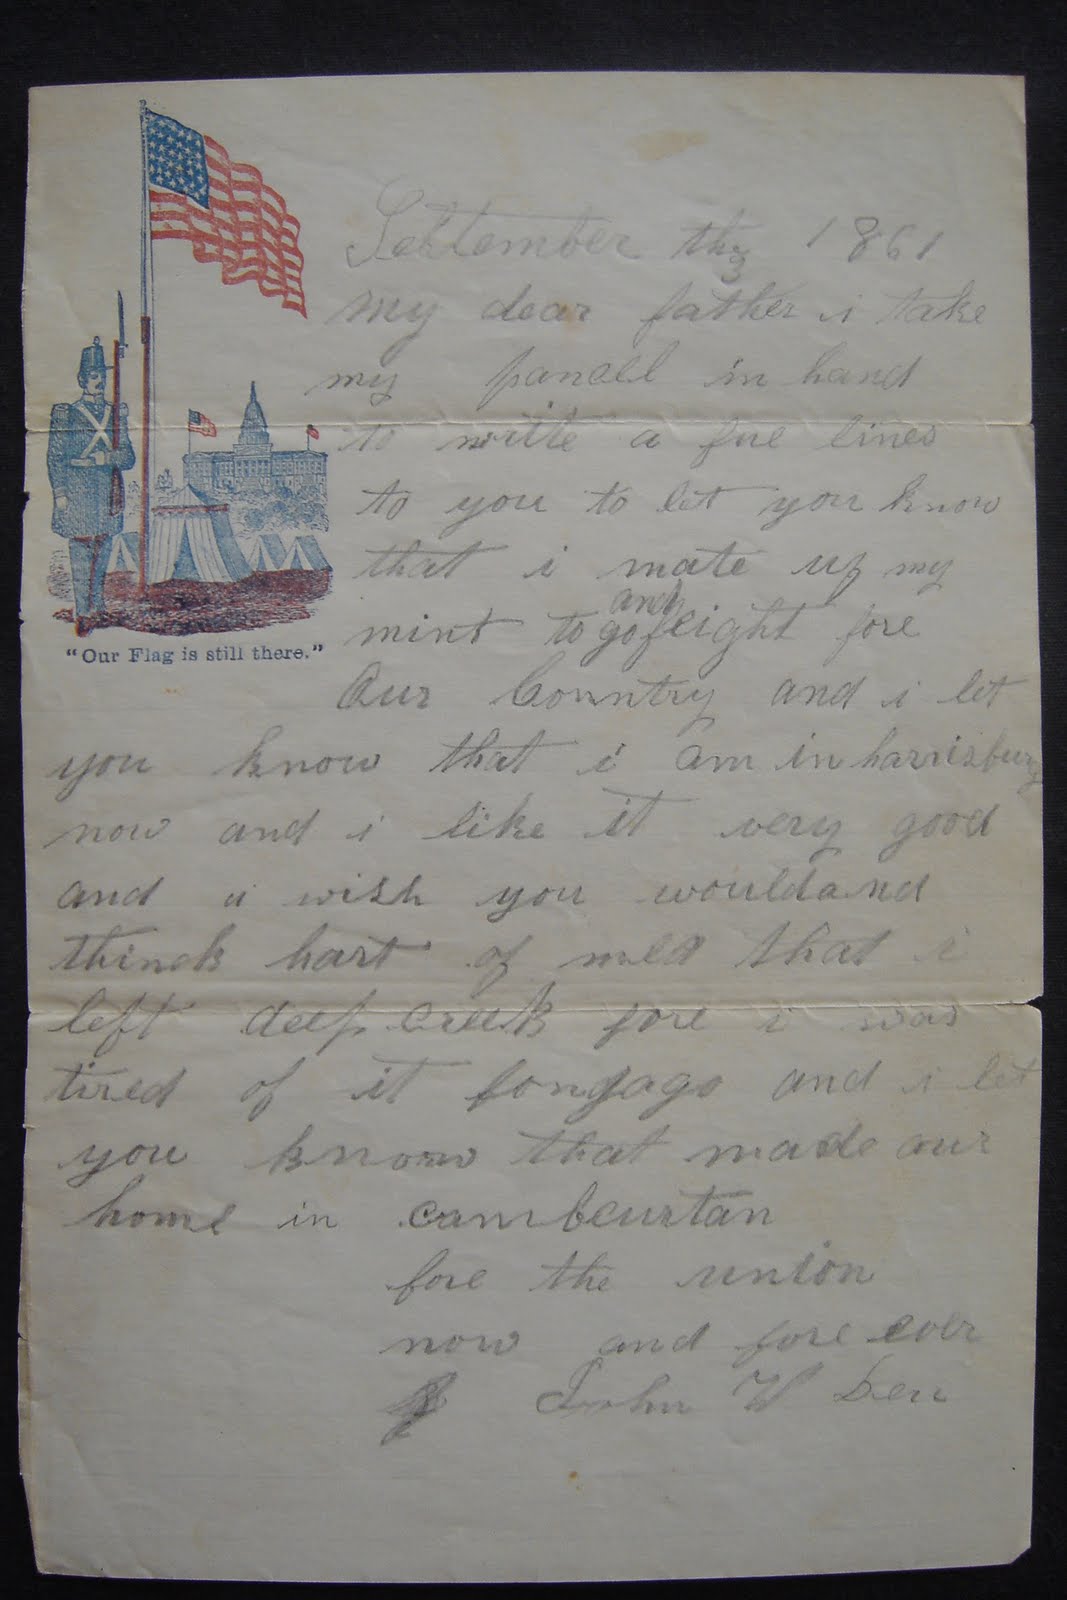 September the 3 1861
my dear father i take
my pancell in hand
to write a fue lines
to you to let you know
that i mate up my
mint to go and feight fore
Our Country and i let
you know that i am in harrisburg
now and i like it very good
and i wish you wouldand
thinck hart of mea that i
left deep creek fore i was
tired of it longago and i let
you know that made our
home in
fore the union
now and fore ever
John W Den
"Our Flag is still there."